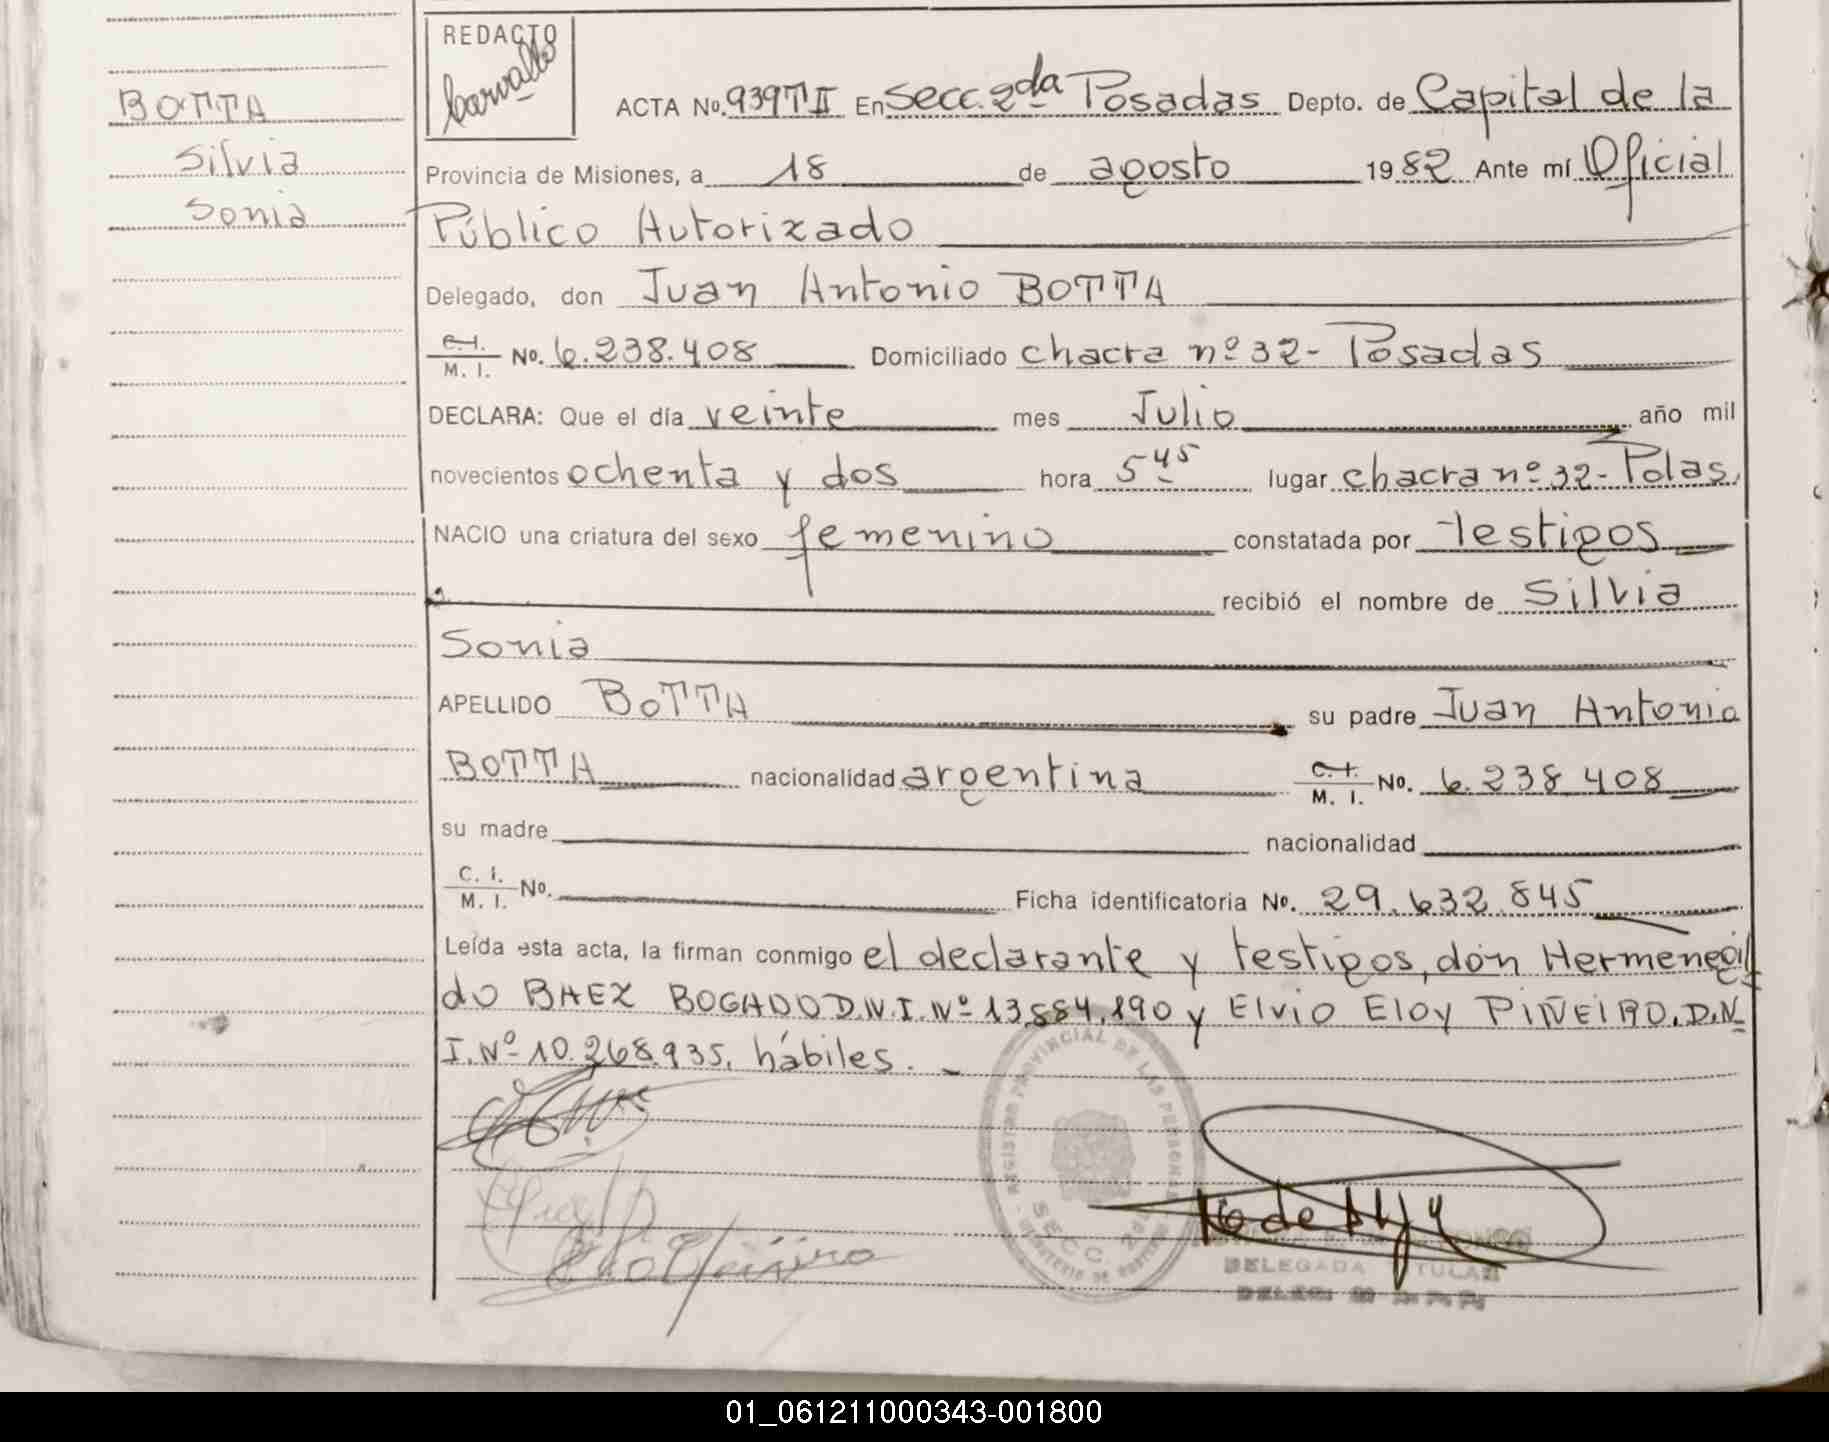 REDACTO
BOTTA
Silvia
Sonia
ACTA No. 939TII En Secc. 2da Posadas Depto. de Capital de la
Provincia de Misiones, a 18 de agosto 1982 Ante mí Oficial
Público Autorizado
Delegado, don Juan Antonio BOTTA
C.I. M. I. No. 6.238.408 Domiciliado chacra nº 32- Posadas
DECLARA: Que el día veinte mes Julio año mil
novecientos ochenta y dos hora 5 45 lugar chacra nº 32- Pdas.
NACIO una criatura del sexo femenino constatada por testigos
recibió el nombre de Silvia
Sonia
APELLIDO BOTTA su padre Juan Antonio
BOTTA nacionalidad argentina C.I. M. I. No. 6.238 408
su madre nacionalidad
C. I. M. I. No. Ficha identificatoria No. 29.632.845
Leída esta acta, la firman conmigo el declarante y testigos, don Hermenegil
do BAEZ BOGADO D.N.I. Nº 13.884.190 y Elvio Eloy PIÑEIRO. D.N.
I. Nº 10.268.935. hábiles. -
REGISTRO PROVINCIAL DE LAS PERSONAS
SECC. 2da
DELEGADA TITULAR
01_061211000343-001800